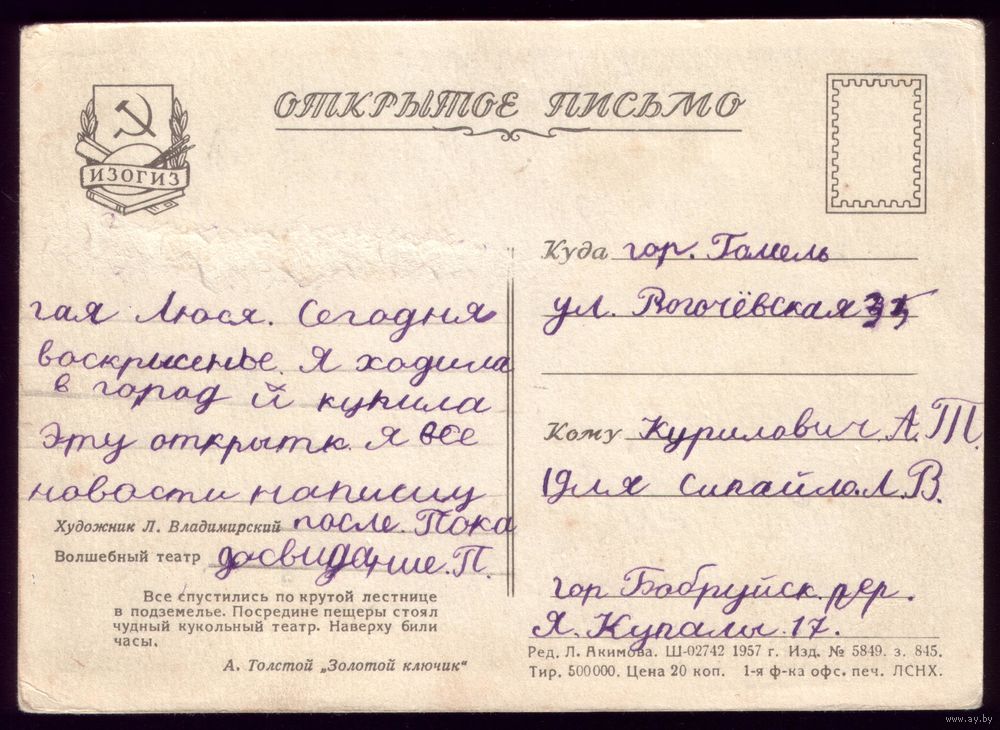 ОТКРЫТОЕ ПИСЬМО
ИЗОГИЗ
гая Люся. Сегодня
воскрисенье. Я ходила
в город й купила
эту открытк. Я все
новости напишу
Художник Л. Владимирский после. Пока
Волшебный театр досвидание. П.
Все спустились по крутой лестнице
в подземелье. Посредине пещеры стоял
чудный кукольный театр. Наверху били
часы.
А. Толстой „Золотой ключик“
Куда гор. Гомель
ул. Рогочёвская
Кому Курилович А. Т.
(для Сипайло Л. В.
гор Бобруйск. пер.
Я. Купалы 17.
Ред. Л. Акимова. Ш-02742 1957 г. Изд. № 5849. з. 845.
Тир. 500000. Цена 20 коп. 1-я ф-ка офс. печ. ЛСНХ.
www.ay.by